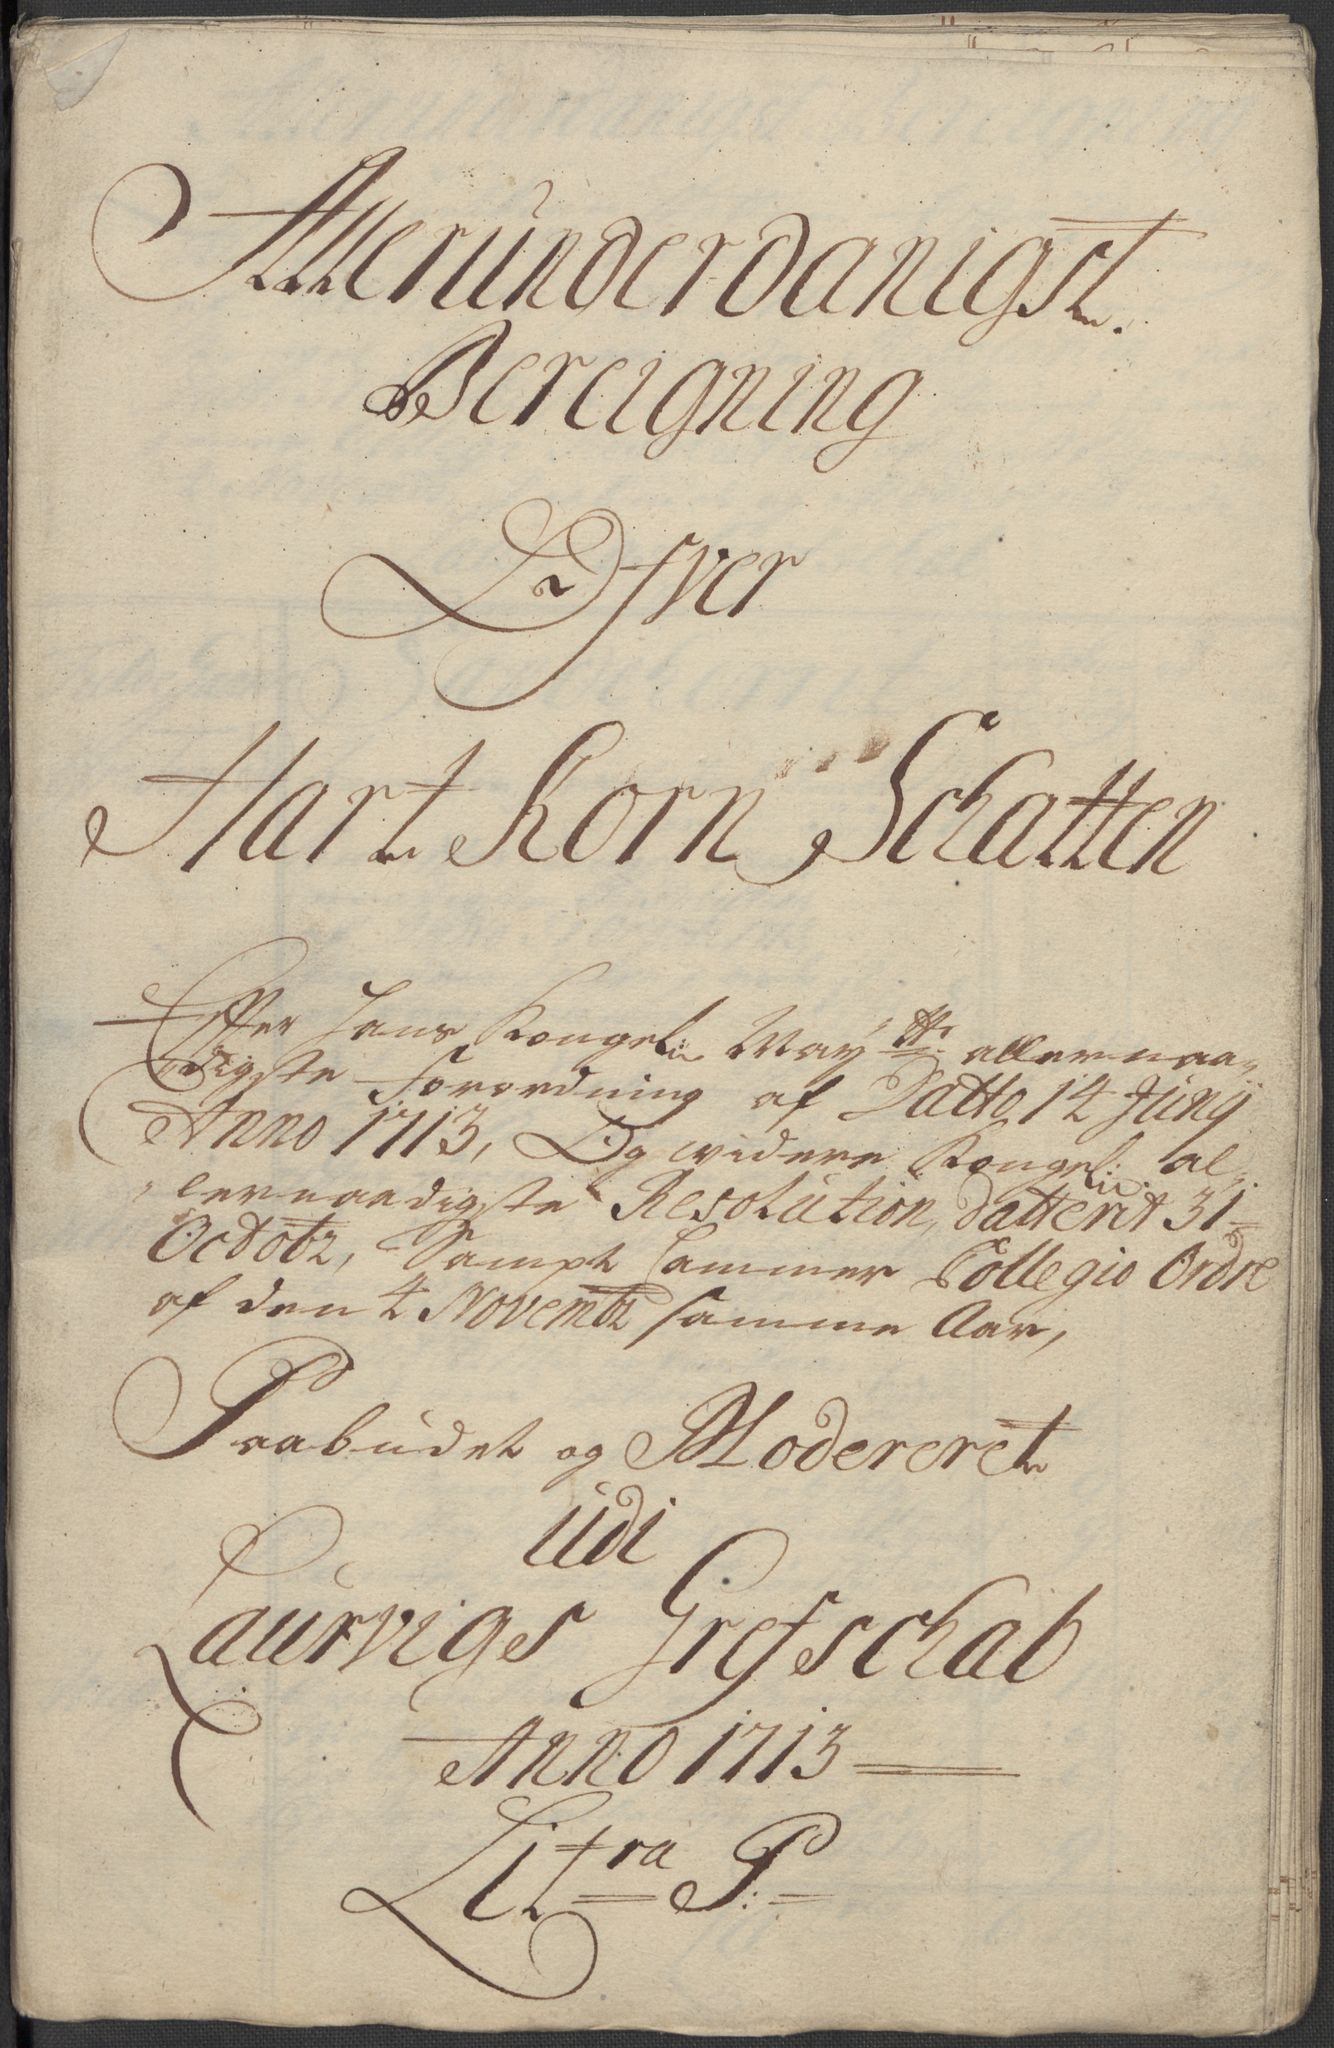 Alleründerdanigst.
Bereigning
Ofver
Hart Korn Schatten
Effter Hans Kongel: May:tts allernaa-
digste Forordning af Datto 14 Junij
Anno 1713, Og widere Kongel: al-
lernaadigste Resolution, datterit 31
Octobr, Sampt Cammer Collegio Ordre
af den 4 Novembr samme Aar,
Paabudet og Modereret
udi
Laürvigs Grefschab
Anno 1713
Litra P: